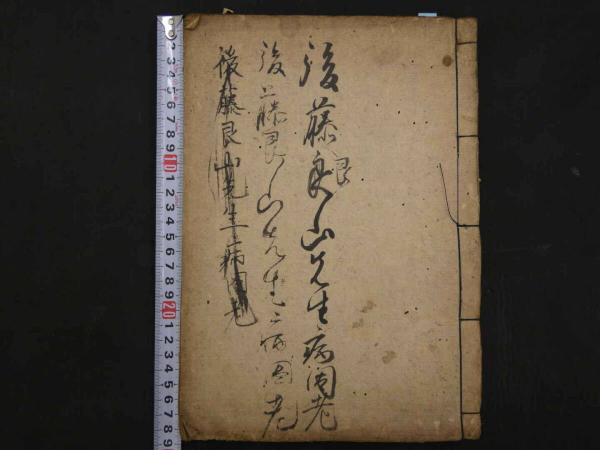 後藤艮山先生病因考
艮
後藤艮山先生病因考
後藤艮山先生病因考
2 3 4 5 6 7 8 9 10 1 2 3 4 5 6 7 8 9 20 1 2 3 4 5 6 7 8 9